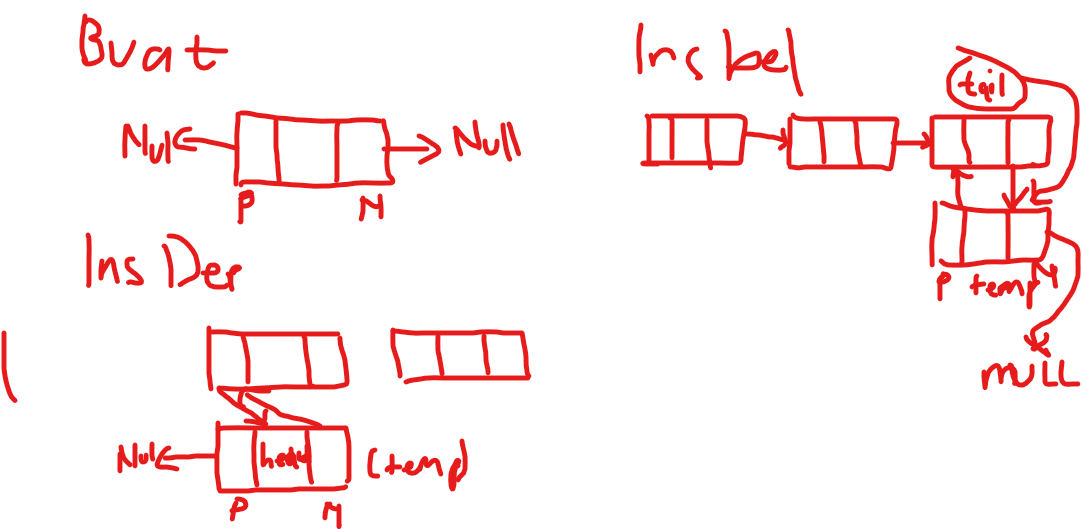 Buat
Null
Null
P
N
Ins Der
Null
head
(temp)
P
N
Ins bel
tail
P
temp
N
NULL